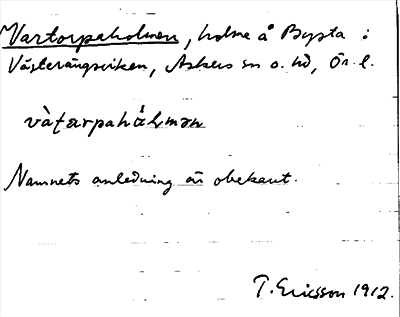 Vartorpaholmen, holme å Bysta i
Västerängsviken, Askers sn o. hd, Ör. l.
vàtarpahålmən
Namnets anledning är obekant.
T. Ericsson 1912.